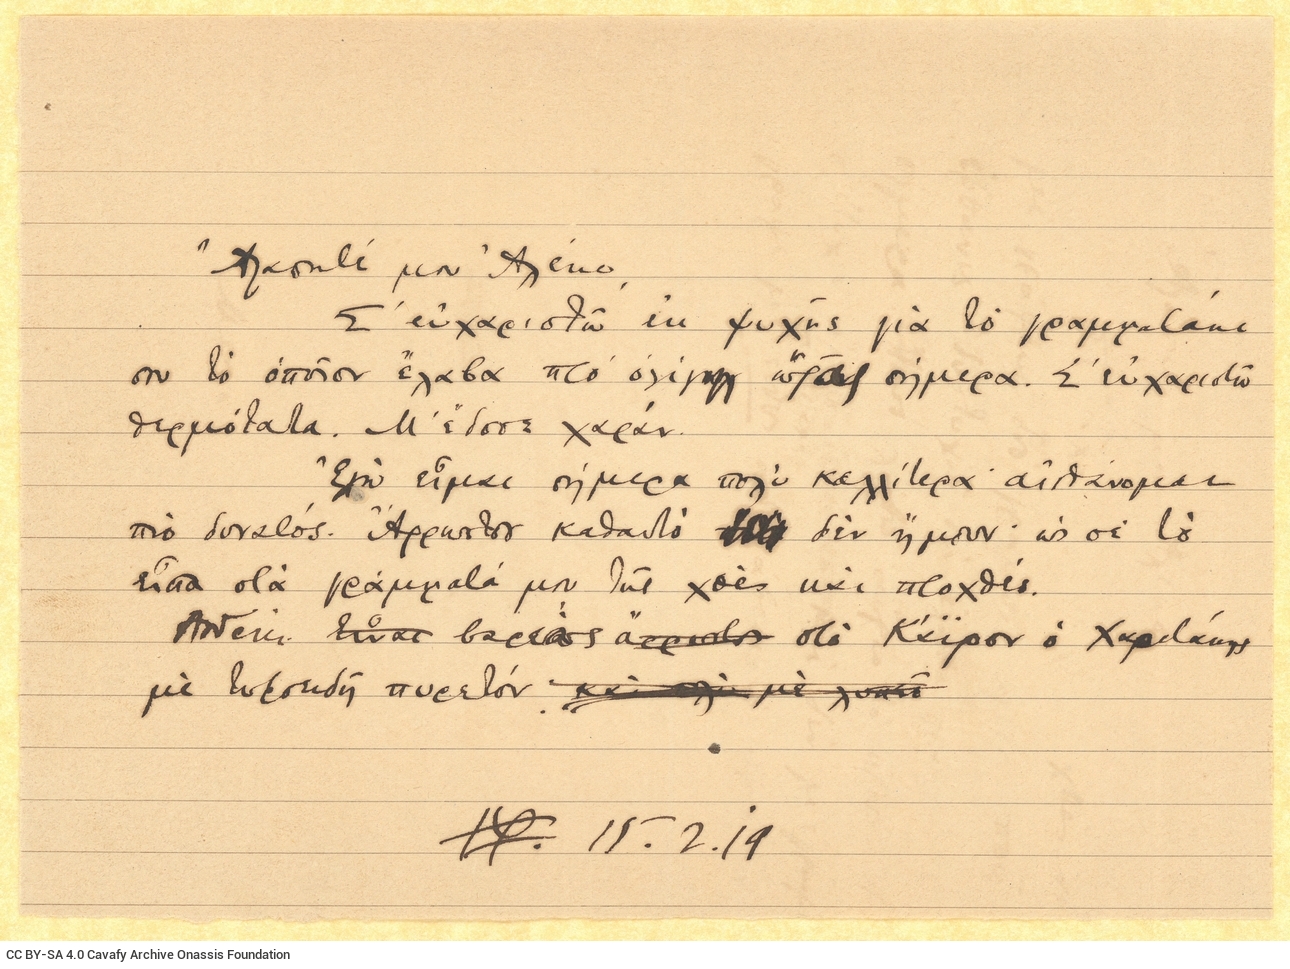 Ἀγαπητέ μου Ἀλέκο,
Σ' εὐχαριστῶ ἐκ ψυχῆς γιὰ τὸ γραμματάκι
σου τὸ ὁποῖον ἔλαβα πρὸ ὀλίγης ὥρας σήμερα. Σ' εὐχαριστῶ
θερμότατα. Μ' ἔδωσε χαράν.
Ἐγὼ εἶμαι σήμερα πολὺ καλλίτερα· αἰσθάνομαι
πιὸ δυνατός. Ἄρρωστος καθαυτὸ δὲν ἤμουν· ὡς σὲ τὸ
εἶπα στὰ γράμματά μου τῆς χθὲς καὶ προχθές.
εἶναι βαρέως ἄρρωστος στὸ Κάϊρον ὁ Χαριτάκης
μὲ τυφοειδῆ πυρετόν· καὶ πολὺ μὲ λυπεῖ
15.2.19
CC BY-SA 4.0 Cavafy Archive Onassis Foundation